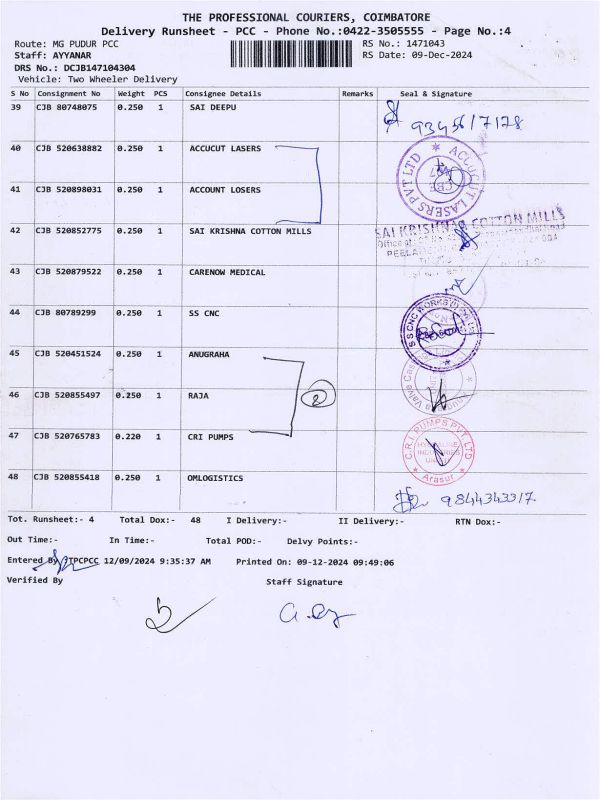 THE PROFESSIONAL COURIERS, COIMBATORE
Delivery Runsheet - PCC - Phone No.:0422-3505555 - Page No.:4
Route: MG PUDUR PCC RS No.: 1471043
Staff: AYYANAR RS Date: 09-Dec-2024
DRS No.: DCJB147104304
Vehicle: Two Wheeler Delivery
S No Consignment No Weight PCS Consignee Details Remarks Seal & Signature
39 CJB 80748075 0.250 1 SAI DEEPU
40 CJB 520638882 0.250 1 ACCUCUT LASERS
ACCUCUT LASERS PVT LTD
41 CJB 520898031 0.250 1 ACCOUNT LOSERS
42 CJB 520852775 0.250 1 SAI KRISHNA COTTON MILLS
SAI KRISHNA COTTON MILLS
43 CJB 520879522 0.250 1 CARENOW MEDICAL
44 CJB 80789299 0.250 1 SS CNC
45 CJB 520451524 0.250 1 ANUGRAHA
46 CJB 520855497 0.250 1 RAJA
2
47 CJB 520765783 0.220 1 CRI PUMPS
C.R.I PUMPS PVT LTD
Arasur
48 CJB 520855418 0.250 1 OMLOGISTICS
Tot. Runsheet:- 4 Total Dox:- 48 I Delivery:- II Delivery:- RTN Dox:-
Out Time:- In Time:- Total POD:- Delvy Points:-
Entered By TPCPCC 12/09/2024 9:35:37 AM Printed On: 09-12-2024 09:49:06
Verified By Staff Signature